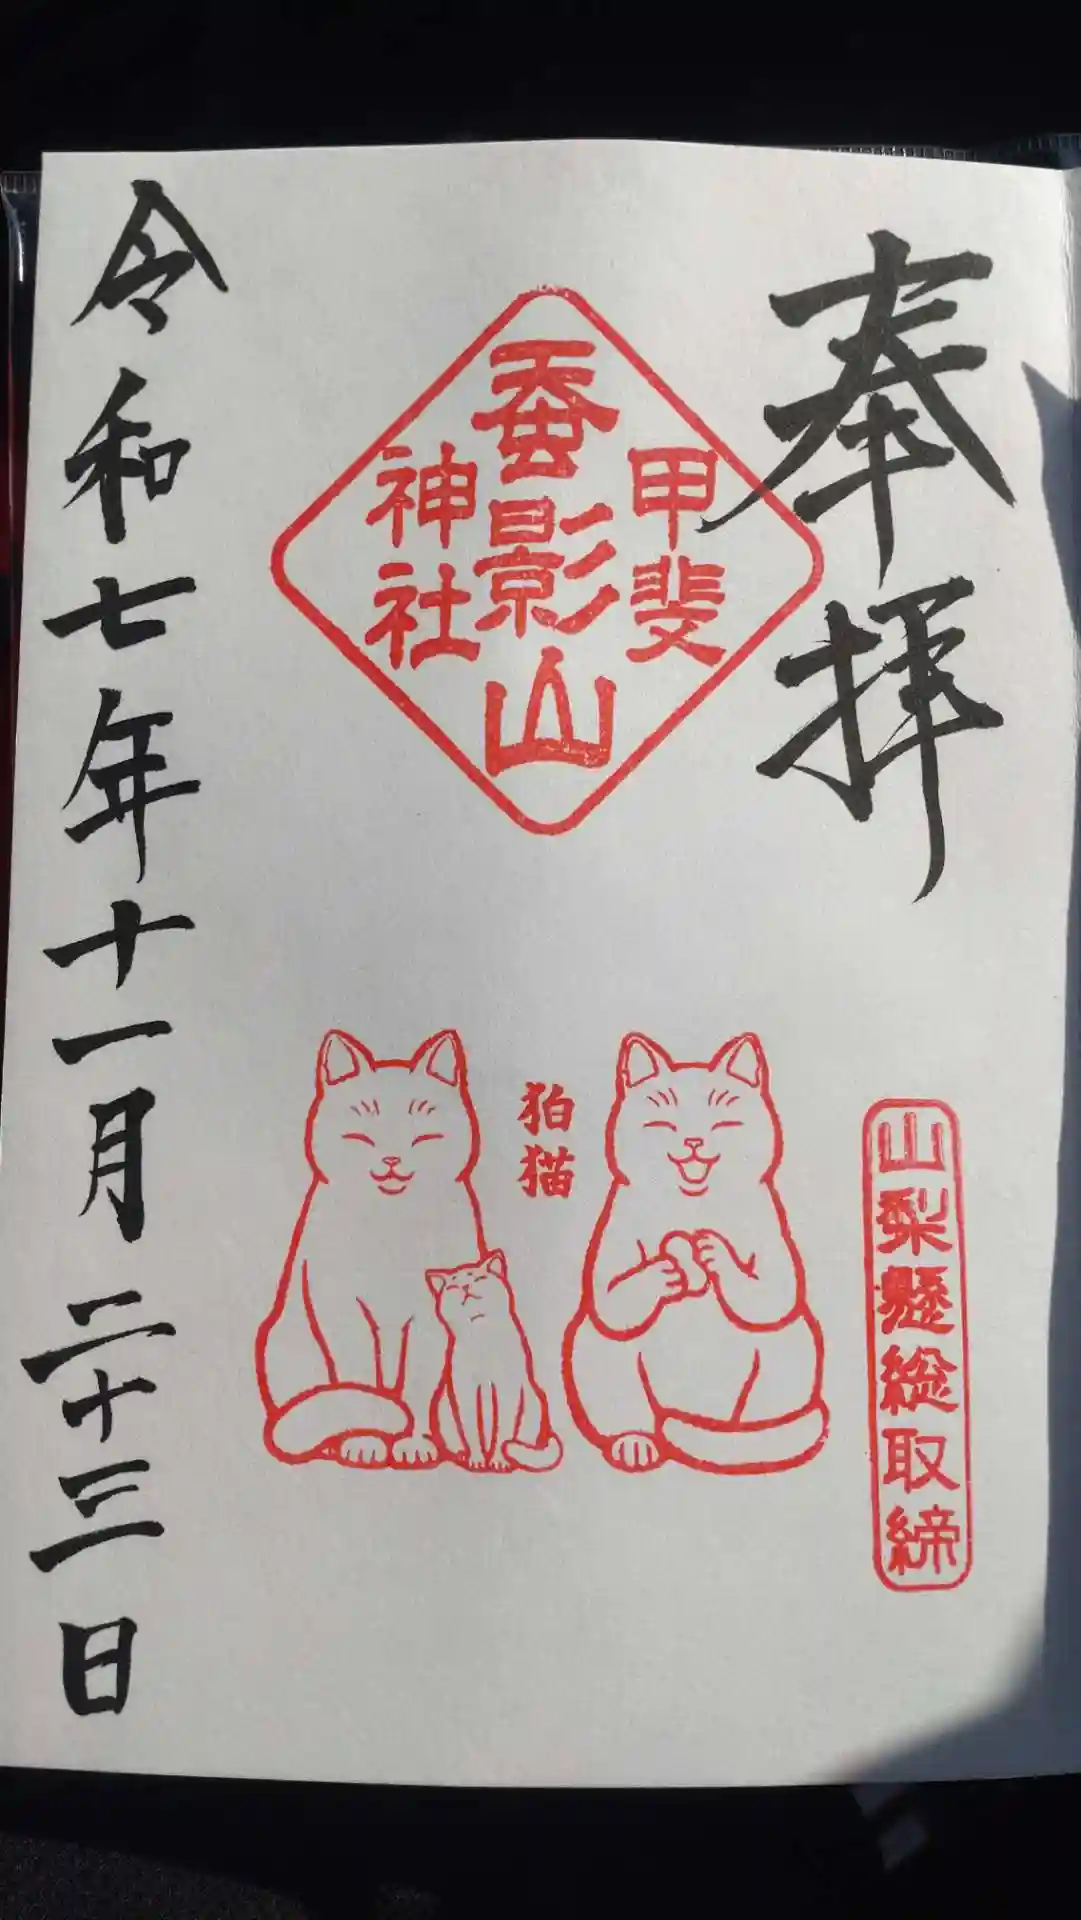 奉拝
甲斐
蚕影山
神社
山梨懸総取締
狛猫
令和七年十一月二十三日